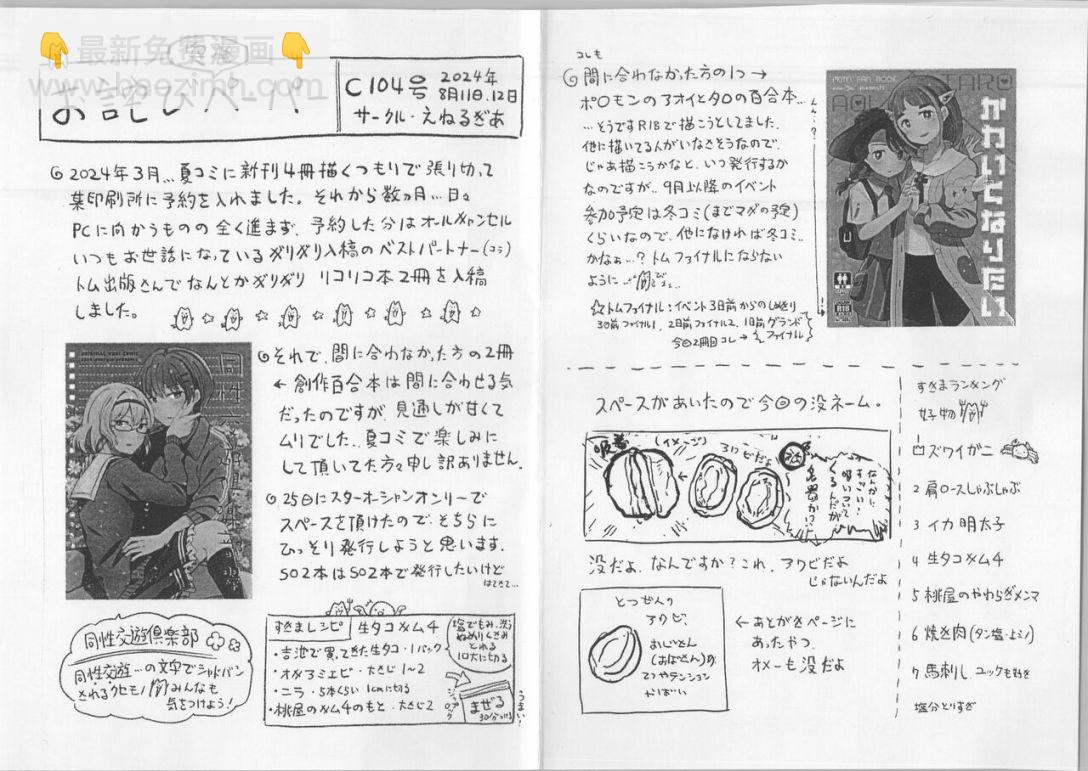 最新免費漫画
www.baozimh.com
お詫びペーパー
C104号
2024年
8月11日.12日
サークル・えねるぎあ
◎2024年3月…夏コミに新刊4冊描くつもりで張り切って
某印刷所に予約を入れました。それから数ヵ月…日々
PCに向かうものの全く進まず、予約した分はオールキャンセル
いつもお世話になっているギリギリ入稿のベストパートナー(コラ)
トム出版さんでなんとかギリギリ リコリコ本2冊を入稿
しました。
◎それで、間に合わなかった方の2冊
←創作百合本は間に合わせる気
だったのですが、見通しが甘くて
ムリでした…夏コミで楽しみに
して頂いてた方々申し訳ありません。
◎25日にスターオーシャンオンリーで
スペースを頂けたので、そちらに
ひっそり発行しようと思います。
SO2本はSO2本で発行したいけど
はてさて…
同性交遊倶楽部
同性交遊…の文字でシャドバン
されるクセモノ
みんなも
気をつけよう!
すきまレシピ
生タコキムチ
塩でもみ、洗う
ぬめりくさみ
とれる
1口大に切る
・吉池で買ってきた生タコ・1パック
・オキアミエビ・大さじ1〜2
・ニラ・5本くらい 1cmに切る
・桃屋のキムチのもと・大さじ2
ジップロック
まぜる
うまい!
コレも
◎間に合わなかった方の1つ→
ポ○モンのアオイとタロの百合本…
…そうですR18で描こうとしてました。
他に描いてる人がいなさそうなので、
じゃあ描こうかなと。いつ発行するか
なのですが…9月以降のイベント
参加予定は冬コミ(までマダの予定)
くらいなので、他になければ冬コミ…
かなぁ…?トムファイナルにならない
ように…
☆トムファイナル:イベント3日前からのしめきり
3日前ファイナル1、2日前ファイナル2、1日前グランド
ファイナル
今回2冊目コレ→
AOI
TARO
かわいくなりたい
R18
スペースがあいたので今回の没ネーム。
(イメージ)
アワビだよ
没だよ、なんですか?これ、アワビだよ
じゃないんだよ
とつぜんの
アワビ。
おじいさん
(おばあさん)の
てつやテンション
やばい
←あとがきページに
あったやつ。
オメーも没だよ
すきまランキング
好物
1 ズワイガニ
2 肩ロースしゃぶしゃぶ
3 イカ明太子
4 生タコキムチ
5 桃屋のやわらぎメンマ
6 焼き肉(タン塩・上ミノ)
7 馬刺し、ユッケも好き
塩分とりすぎ